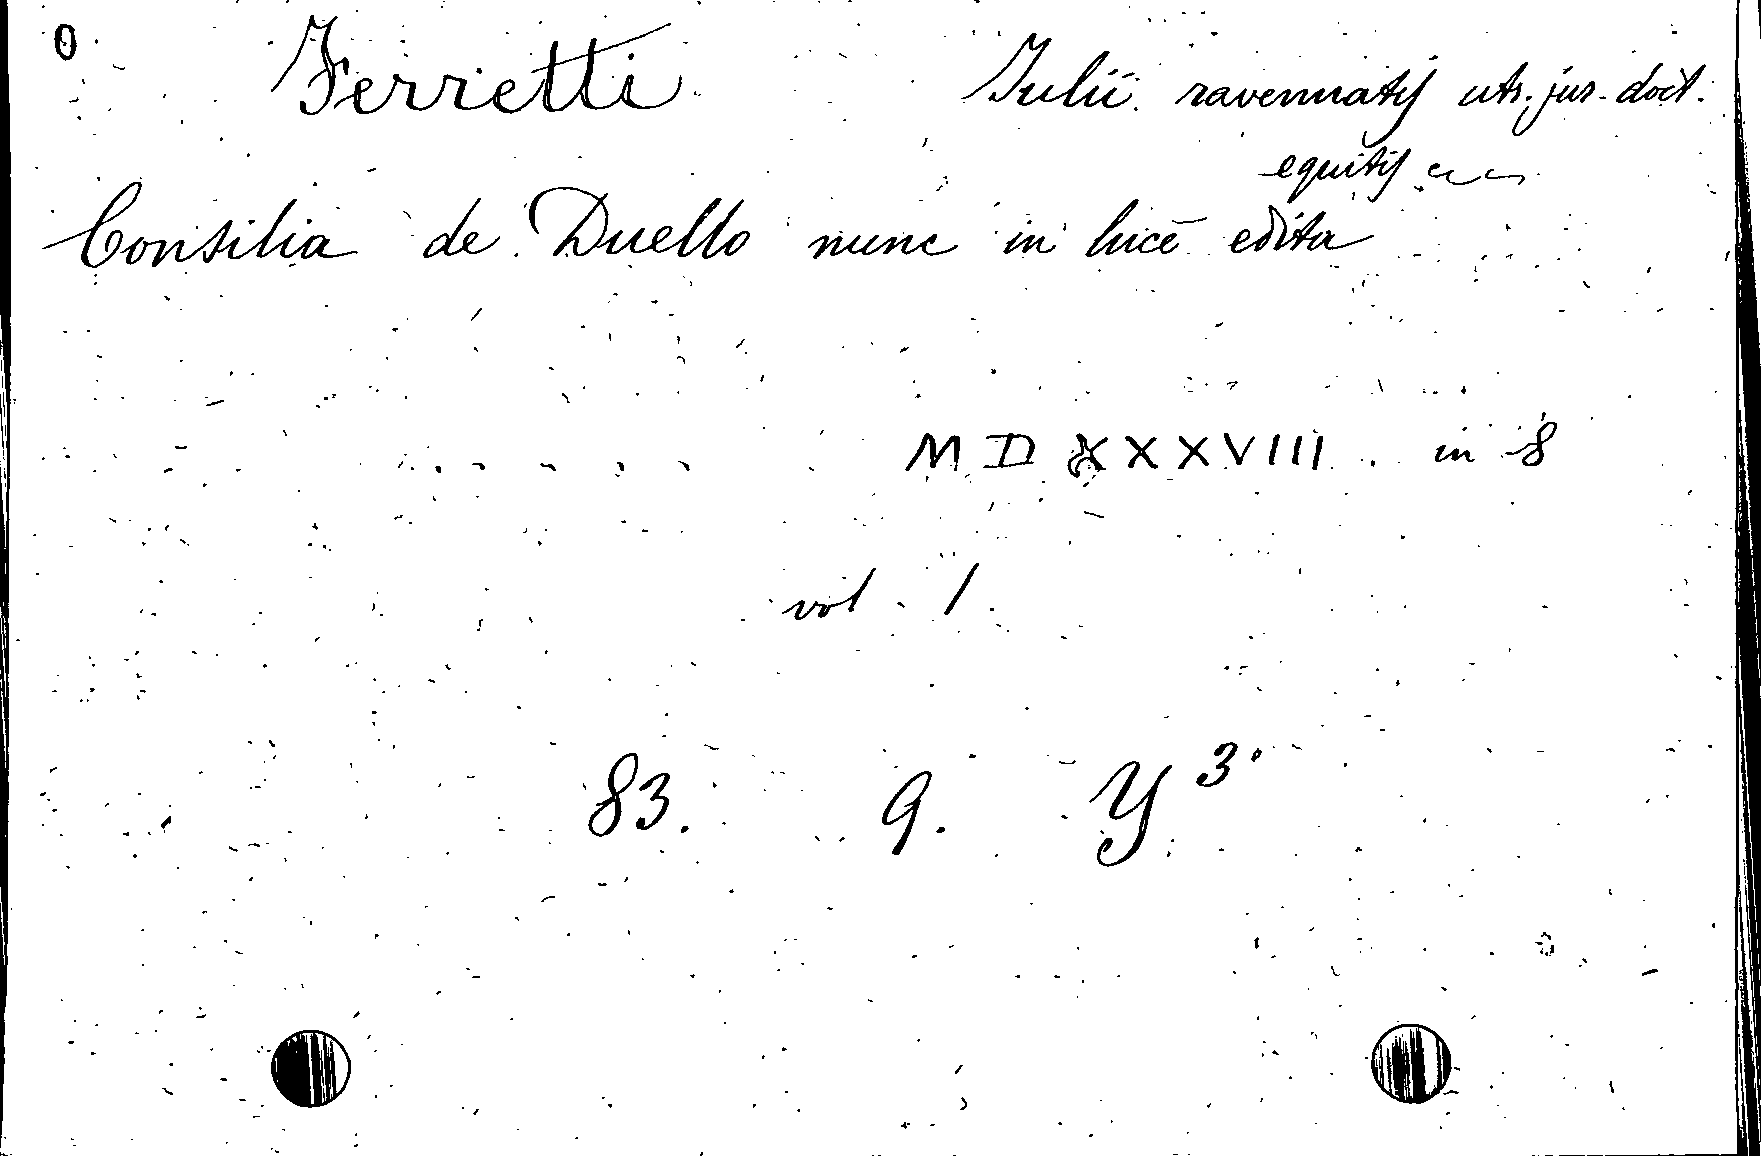 0 Ferretti Julii ravennatis utr. jur. doct.
equitis
Consilia de Duello nunc in lucē edita
MDXXXVIII. in 8
vol. 1.
83. 9. Y 3.